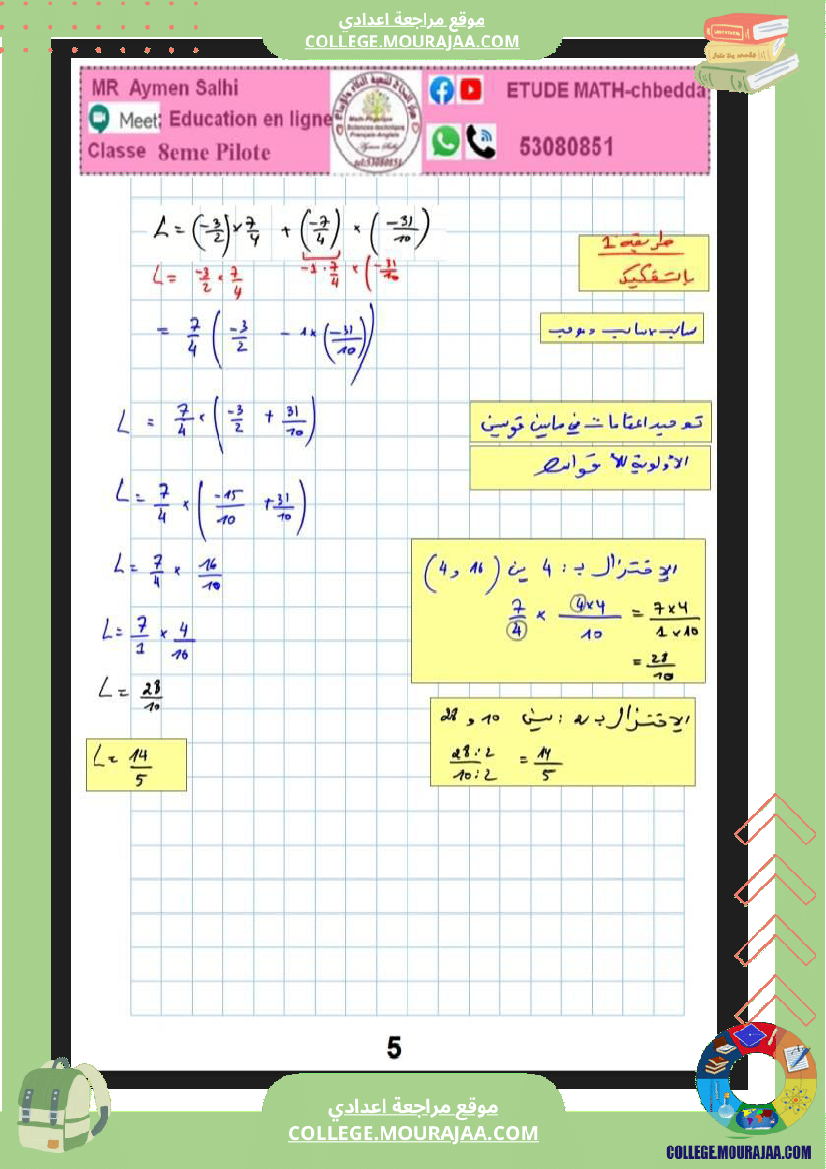 موقع مراجعة اعدادي
COLLEGE.MOURAJAA.COM
MR Aymen Salhi
Meet: Education en ligne
Classe 8eme Pilote
ETUDE MATH-chbedda
53080851
L = (-3/2) × 7/4 + (-7/4) × (-31/10)
طريقة 1
بالتفكيك
L = -3/2 × 7/4 -1 × 7/4 × (-31/10
= 7/4 (-3/2 - 1 × (-31/10))
سالب × سالب = موجب
L = 7/4 × (-3/2 + 31/10)
توحيد المقامات في مابين قوسين
الأولوية للأقواس
L = 7/4 × (-15/10 + 31/10)
L = 7/4 × 16/10
الإختزال بـ : 4 بين (16 و 4)
7/4 × 4×4/10 = 7×4/1×10
= 28/10
L = 7/1 × 4/10
L = 28/10
الإختزال بـ 2 : بين 10 و 28
28:2/10:2 = 14/5
L = 14/5
5
موقع مراجعة اعدادي
COLLEGE.MOURAJAA.COM
COLLEGE.MOURAJAA.COM